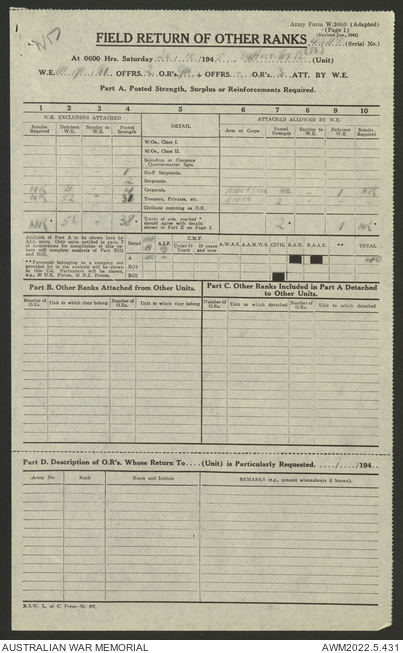 Army Form W.3009 (Adapted)
(Page 1)
(Revised Jan., 1943)
FIELD RETURN OF OTHER RANKS (Serial No.)
At 0600 Hrs. Saturday /194 (Unit)
W.E. OFFRS. O.R's. + OFFRS. O.R's. ATT. BY W.E.
Part A. Posted Strength, Surplus or Reinforcements Required.
1 2 3 4 5 6 7 8 9 10
W.E. EXCLUDING ATTACHED DETAIL ATTACHED ALLOWED BY W.E.
Reinfts. Required Deficient W.E. Surplus to W.E. Posted Strength Arm or Corps Posted Strength Surplus to W.E. Deficient W.E. Reinfts. Required
W.Os., Class I.
W.Os., Class II.
Squadron or Company Quartermaster Sgts.
1 Staff Sergeants.
2 Sergeants.
NR 4 Corporals. 1 NR
NR 52 31 Troopers, Privates, etc. 2
Civilians messing as O.R.
NR 56 38 Totals of cols. marked * should agree with details shown in Part E on Page 2. 2 1 NR
Analysis of Part A to be shown here by ALL units. Only units notified in para. 7 of instructions for compilation of this return will complete analysis of Part B(1) and B(2).
**Personnel belonging to a category not provided for in the analysis will be shown in this Col. Particulars will be shown, e.g., 10 U.K. Forces, 10 N.Z. Forces.
Detail A.I.F. C.M.F. Under 19 Years 19 years and over A.W.A.S. A.A.M.W.S. CIVIL R.A.N. R.A.A.F. ** TOTAL
A 40 40
B(1)
B(2)
Part B. Other Ranks Attached from Other Units.
Part C. Other Ranks Included in Part A Detached to Other Units.
Number of O.Rs. Unit to which they belong Number of O.Rs. Unit to which they belong Number of O.Rs. Unit to which detached Number of O.Rs. Unit to which detached
Part D. Description of O.R's. Whose Return To....(Unit) is Particularly Requested. ...../...../194..
Army No. Rank Name and Initials REMARKS (e.g., present whereabouts if known).
N.S.W. L. of C. Press
AUSTRALIAN WAR MEMORIAL AWM2022.5.431